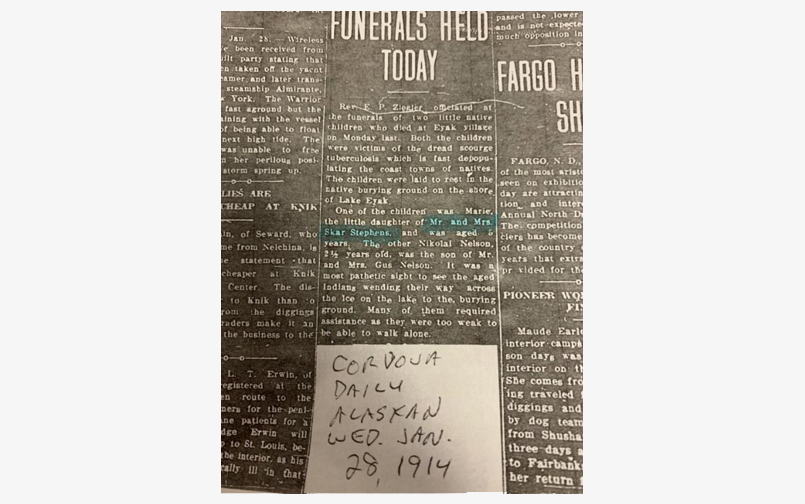 Jan. 28.— Wireless
been received from
party stating that
taken off the yacht
and later trans-
steamship Almirante,
York. The Warrior
fast aground but the
with the vessel
of being able to float
next high tide. The
was unable to free
her perilous posi-
storm spring up.
ARE
CHEAP AT KNIK
of Seward, who
from Nelchina, is
statement that
cheaper at Knik
Center. The dis-
to Knik than to
the diggings
make it an
the business to the
L. T. Erwin, of
registered at the
route to the
for the
patients for
Erwin will
to St. Louis, be-
the interior, as his
ill in that
FUNERALS HELD
TODAY
Rev. E. P. Ziegler officiated at
the funerals of two little native
children who died at Eyak village
on Monday last. Both the children
were victims of the dread scourge
tuberculosis which is fast depopu-
lating the coast towns of natives.
The children were laid to rest in the
native burying ground on the shore
of Lake Eyak.
One of the children was Marie,
the little daughter of Mr. and Mrs.
Skar Stephens, and was aged
years. The other Nikolai Nelson,
2½ years old, was the son of Mr.
and Mrs. Gus Nelson. It was a
most pathetic sight to see the aged
Indians wending their way across
the ice on the lake to the burying
ground. Many of them required
assistance as they were too weak to
be able to walk alone.
CORDOVA
DAILY
ALASKAN
WED. JAN.
28, 1914
passed the lower
and is not
much opposition in
FARGO
SH
FARGO, N. D.,
of the most
seen on
day are
and
Annual North
The
has become
of the country
years that
for the
PIONEER
Maude
interior
son days was
interior on
She comes
ing traveled
diggings and
by dog team
from
three days
to
her return